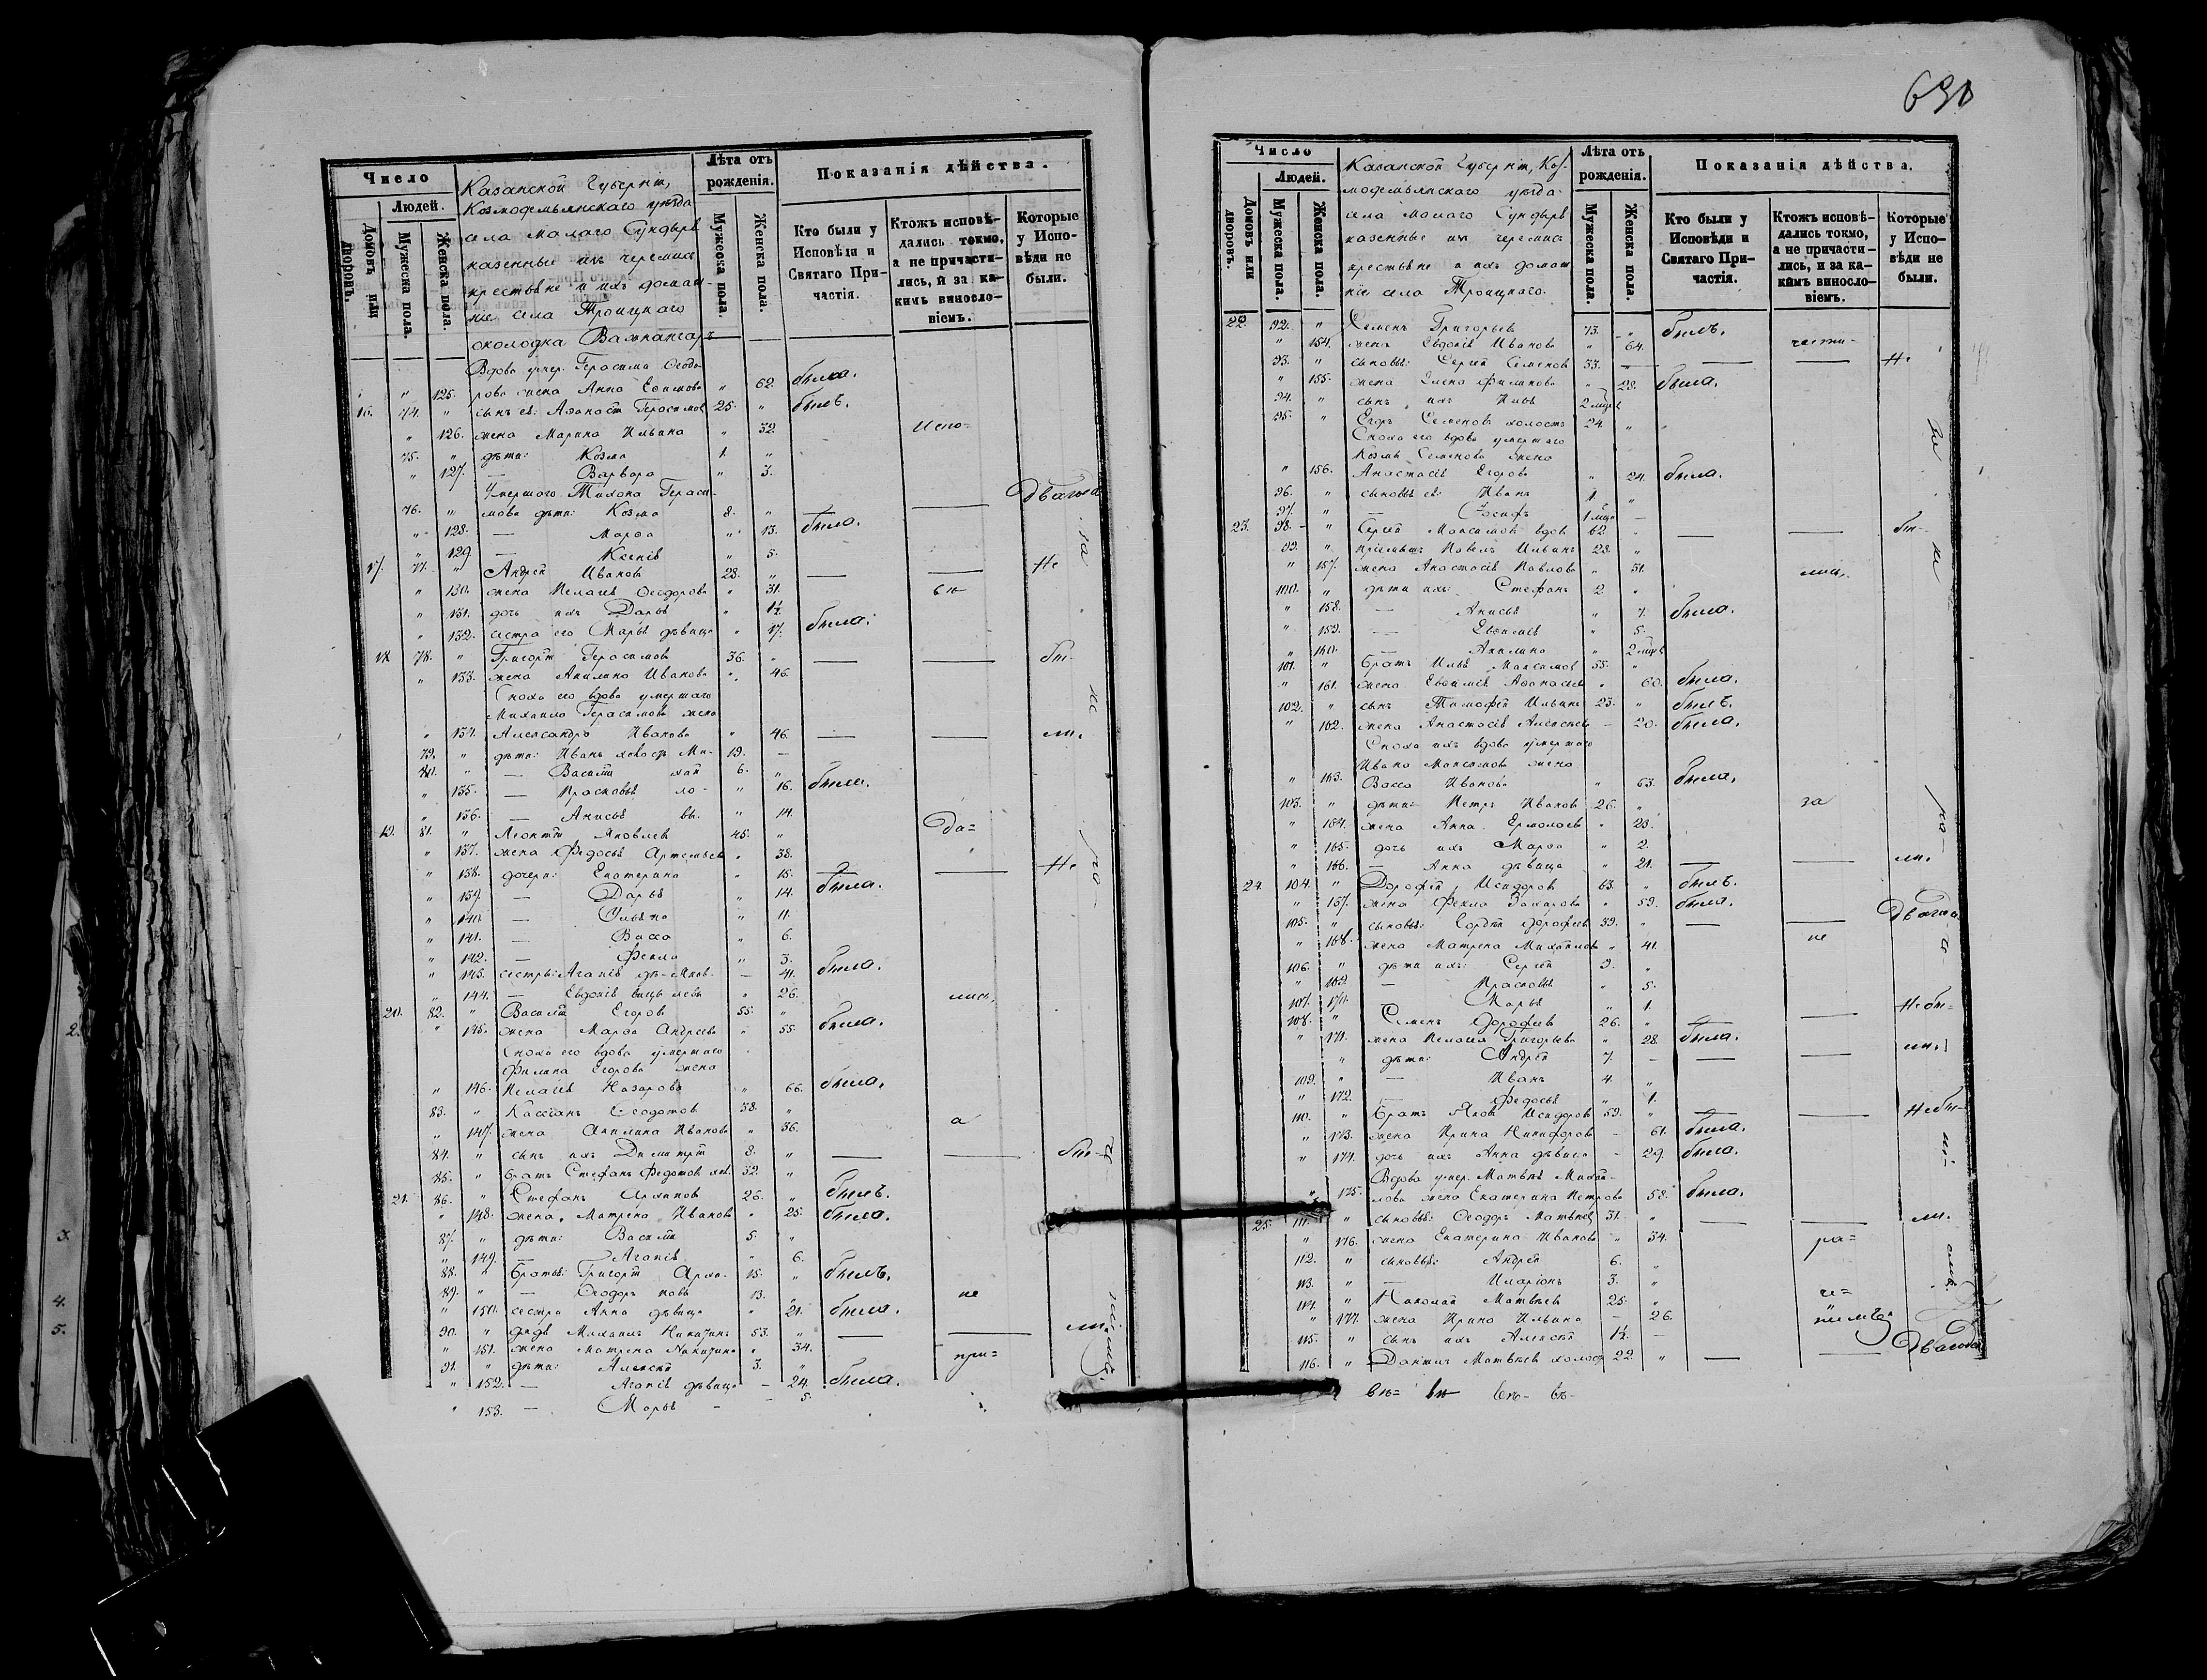 690
Число
Людей.
Домовъ или дворовъ.
Мужеска пола.
Женска пола.
Казанской Губерніи,
Козмодемьянскаго уѣзда
села Малаго Сундыря
казенные изъ черемисъ
крестьяне и ихъ домаш-
ніе села Троицкаго
околодка
Лѣта отъ рожденія.
Мужеска пола.
Женска пола.
Показанія дѣйства.
Кто были у Исповѣди и Святаго При-частія.
Ктожъ исповѣ-дались токмо, а не причасти-лись, и за ка-кимъ винosло-віемъ.
Которые у Испо-вѣди не были.
Вдова умер. Герасима Ѳеодо-
" " 125. рова жена Анна Евдимова " 62. была.
16. 74. " сынъ еѣ: Аѳанасій Герасимов 25. " былъ.
" 126. жена Марина Ильина " 32. Испо=
75. " дѣти: Козма 1. "
" 127. — Варвара " 3.
Умершаго Тихона Гераси-
76. " мова дѣти: Козма 8. " — —
" 128. — Марѳа " 13. была.
" 129. — Ксенія " 5.
17. 77. " Андрей Иванов 28. " — — Не
" 130. жена Пелагея Ѳеодорова " 31. вѣ
" 131. дочь ихъ Дарья " 1½.
" 132. сестра его Марья дѣвица " 17. была.
18. 78. " Григорій Герасимов 36. " — — бы-
" 133. жена Акилина Иванова " 46.
Сноха его вдова умершаго
Михаила Герасимова жена
" 134. Александра Иванова " 46. — — ли.
79. " дѣти: Иванъ холостъ Ми- 19. —
80. " — Василій хай 6. "
" 135. — Прасковья ло- " 16. была.
" 136. — Анисья вы. " 14.
19. 81. " Леонтій Яковлев 45. " да=
" 137. жена Ѳедосья Артемьева " 38.
" 138. дочери: Екатерина " 15. — — Не
" 139. — Дарья " 14. была.
" 140. — Ульяна " 11.
" 141. — Васса " 6.
" 142. — Фекла " 3.
" 143. сестры: Агапія дѣ- Яков- — 41. была.
" 144. — Евдокія вицы левы " 26. лись,
20. 82. " Василій Егоров 55. "
" 145. жена Марѳа Андреева " 55. была.
Сноха его вдова умершаго
Филипа Егорова жена
" 146. Пелагея Назарова " 66. была.
83. " Кассіанъ Ѳеодотов 38. "
" 147. жена Акилина Иванова " 36. а
84. " сынъ ихъ Димитрій 8. " — — бы-
85. " братъ Стефанъ Федотов хол. 32. "
21. 86. " Стефанъ Архипов 26. " былъ.
" 148. жена Матрена Иванова " 25. была.
87. " дѣти: Василій 5. "
" 149. — Агапія " 6.
88. " братья: Григорій Архи- 15. " былъ.
89. " — Ѳеодоръ повы 13. не
" 150. сестра Анна дѣвица " 21. была.
90. " дядя Михаилъ Никитинъ 53. " — — ли.
" 151. жена Матрена Никитина " 34. при=
91. " дѣти: Алексѣй 3. "
" 152. — Агапія дѣвица — 24. была.
" 153. — Марья — — 5.
Число
Людей.
Домовъ или дворовъ.
Мужеска пола.
Женска пола.
Казанской Губерніи, Коз-
модемьянскаго уѣзда
села Малаго Сундыря
казенные изъ черемисъ
крестьяне и ихъ домаш
ніе села Троицкаго.
Лѣта отъ рожденія.
Мужеска пола.
Женска пола.
Показанія дѣйства.
Кто были у Исповѣди и Святаго При-частія.
Ктожъ исповѣ-дались токмо, а не причасти-лись, и за ка-кимъ винosло-віемъ.
Которые у Испо-вѣди не были.
22. 92. " Семенъ Григорьев 73. " былъ.
" 154. жена Евдокія Иванова " 64. части-
93. " сыновья: Сергѣй Семенов 33. — — Не
" 155. жена Елена Филипова " 28. была.
94. " сынъ ихъ Илья 2 мѣся
95. " Егоръ Семеновъ холостъ 24. " "
Сноха его вдова умершаго
Козмы Семенова жена
" 156. Анастасія Егорова " 24. была.
96. " сыновья еѣ: Иванъ "
97. " — Іосифъ 1 мѣся —
23. 98. " Сергѣй Максимов вдов 62. " — — бы-
99. " пріемышъ Павелъ Ильинъ 28. "
" 157. жена Анастасія Павлова " 31. лись,
100. " дѣти ихъ: Стефанъ 2. "
" 158. — Анисья " 7. была.
" 159. — Евѳимія " 5.
" 160. — Акилина " 2 мѣся
101. " братъ Илья Максимов 55. "
" 161. жена Евѳимія Аѳанасьев " 60. была.
102. " сынъ Тимофей Ильинъ 23. " былъ.
" 162. жена Анастасія Алексѣев — 20. была.
Сноха ихъ вдова умершаго
Ивана Максимова жена
" 163. Васса Иванова " 63. была.
103. " дѣти: Петръ Иванов 26. " за
" 164. жена Анна Ермолаев " 23.
" 165. дочь ихъ Марѳа " 2.
" 166. — Анна дѣвица " 21. — — ли.
24. 104. " Дорофей Исидоров 63. " былъ.
" 167. жена Фекла Захарова " 59. была.
105. " сыновья: Гордѣй Дорофеев 39. " — —
" 168. жена Матрена Михайлов " 41. не
106. " дѣти ихъ: Сергѣй 9. "
" 169. — Прасковья " 5.
107. 170. — Марья " 1. Не бы=
108. " Семенъ Дорофеев 26. " —
" 171. жена Пелагея Григорьева " 28. была.
" дѣти: Андрей 7. — — — ли.
109. " — Иванъ 4. "
" 172. — Ѳедосья " 1.
110. " братъ Яков Исидоров 59. " — — Не бы-
" 173. жена Ирина Никифоров — 61. была.
" 174. дочь ихъ Анна дѣвица — 29. была.
Вдова умер. Матвѣя Михай-
" 175. лова жена Екатерина Петрова 58. была.
25. 111. " сыновья: Ѳеодоръ Матвѣев 31. " — — ли.
" 176. жена Екатерина Иванова " 34. ра=
112. " сыновья: Андрей 6. "
113. " — Иларіонъ 3. "
114. " Николай Матвѣев 25. "
" 177. жена Ирина Ильина — 26.
115. " сынъ ихъ Алексѣй 1½. —
116. " Даніилъ Матвѣев холост 22. " — —